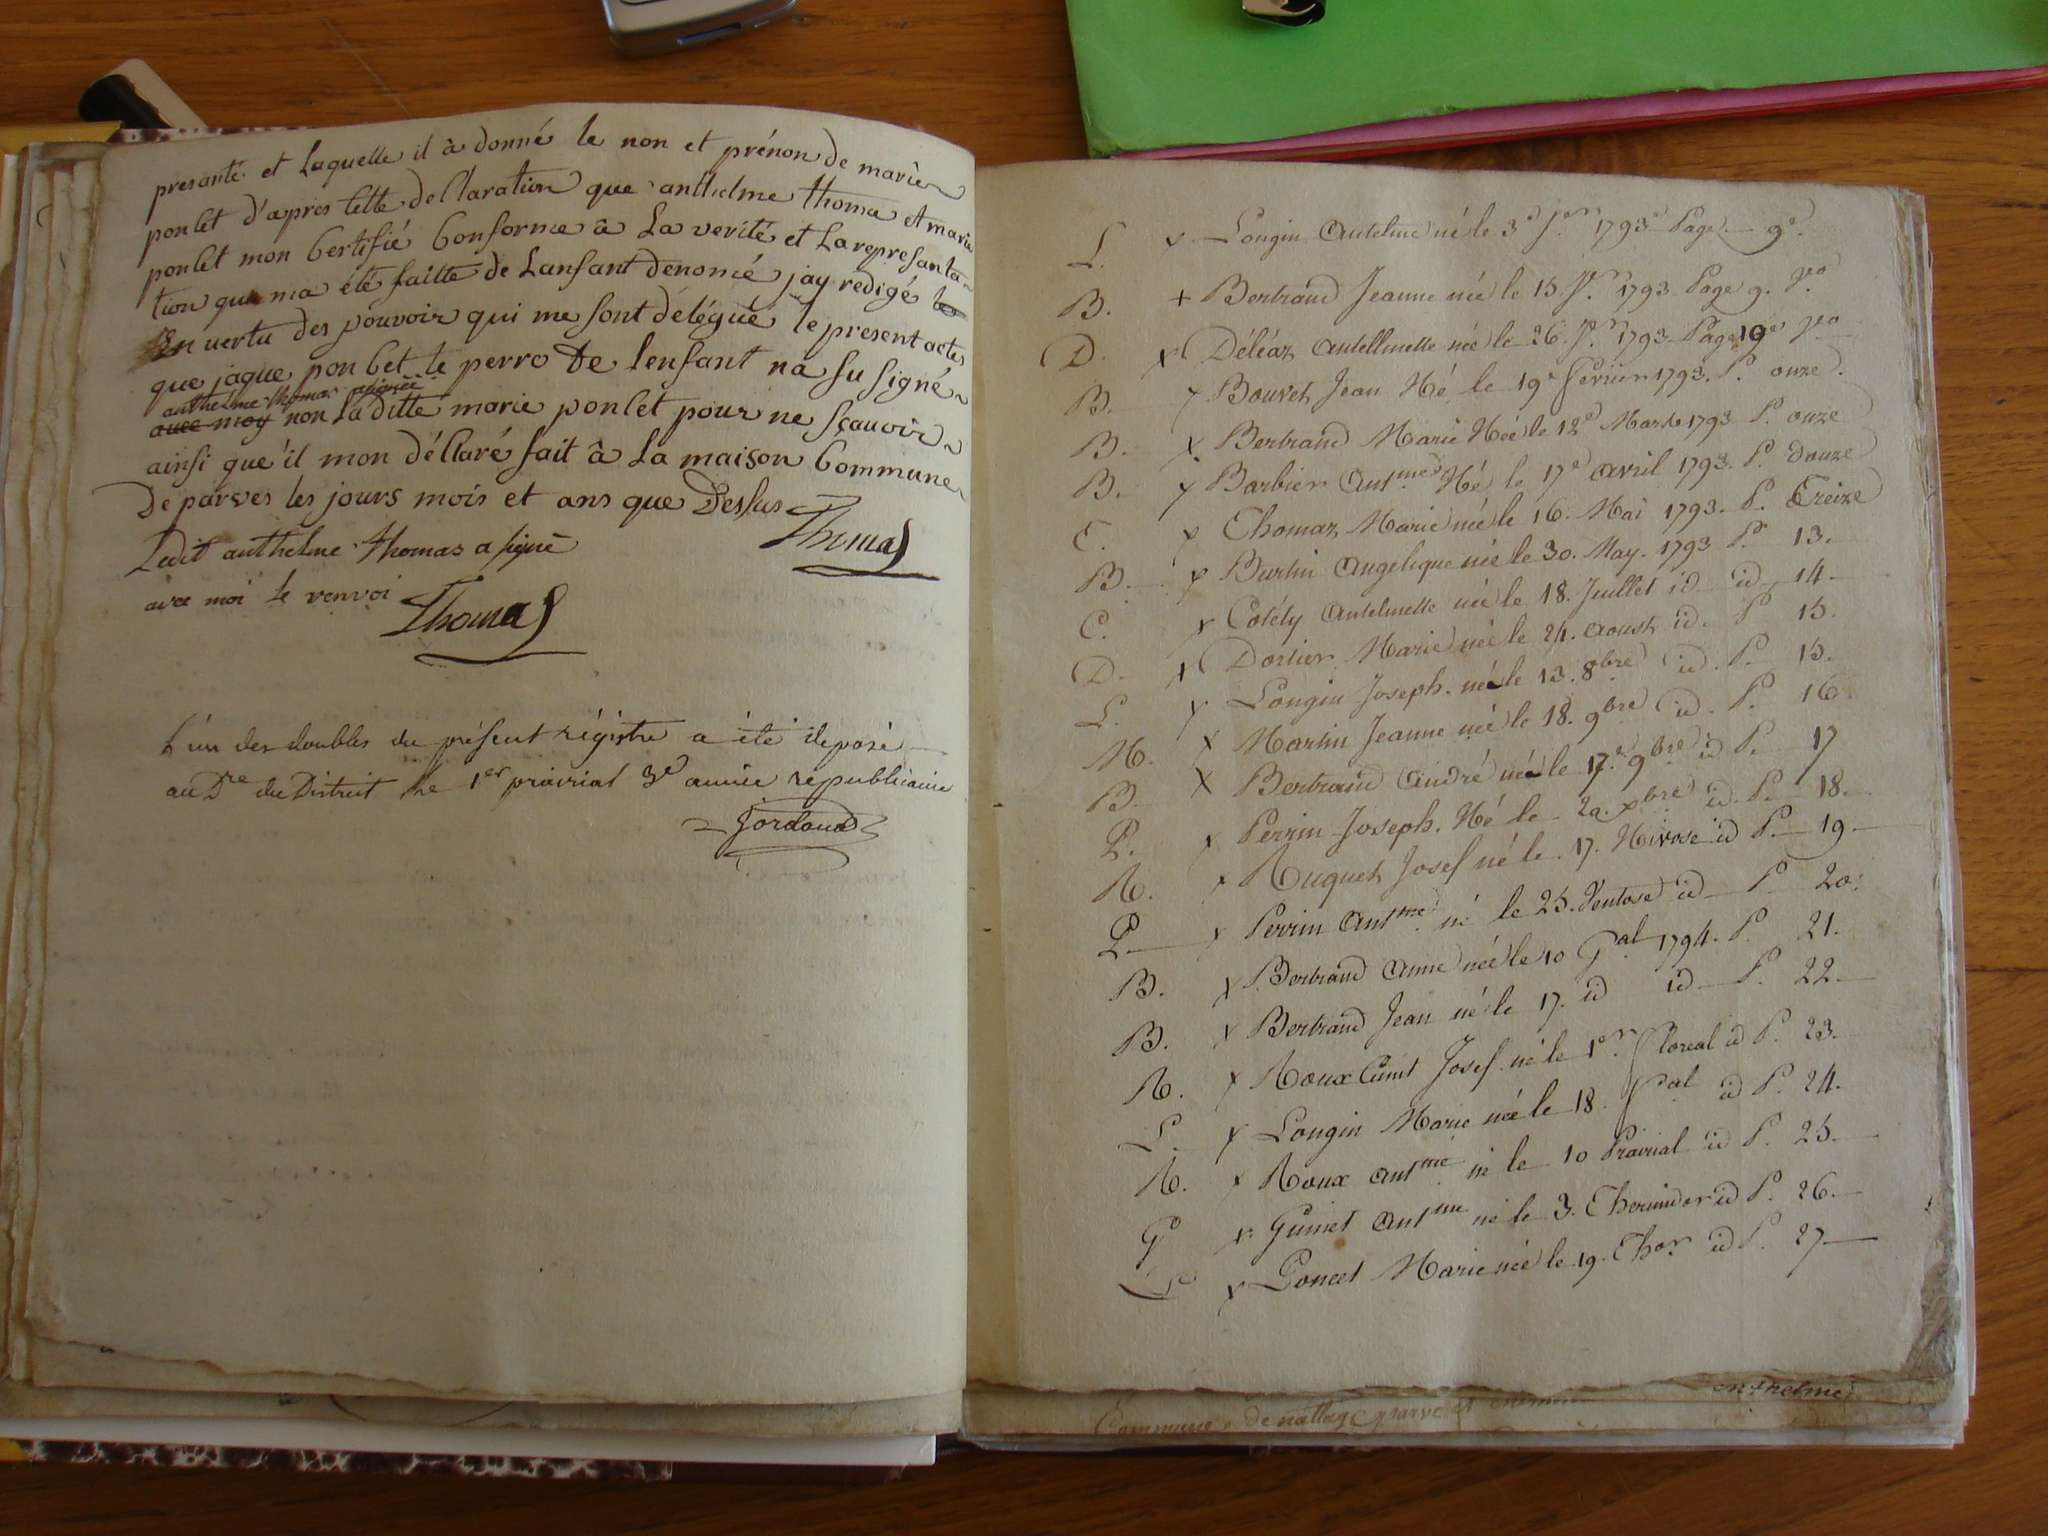 presante et laquelle il à donné le non et prénon de marie
ponlet d'apres cette declaration que anthelme thoma et marie
ponlet mon Certifié Conforme à La verité et La represanta-
tion que ma été faitte de Lansant denomé jay redigé
En vertu des pouvoir qui me sont délégué le present actes
que jaque ponlet le perre de lenfant na su signé
anthelme thomas
avec moy non La ditte marie ponlet pour ne sçavoir
ainsi que'il mon déClaré fait à La maison Commune
De parves les jours mois et ans que Dessus
Thomas
Ledit anthelme thomas a signé
avec moi le renvoi
Thomas
L'un des doubles du présent régistre a été déposé
au Dre du District le 1er prairial 3e année republicaine
Jordand
L. x Longin Antelme né le 3e Jer 1793 Page 9e.
B. + Bertrand Jeanne née le 15. Jer. 1793 Page 9. vo
D. x Déléaz Antellmette née le 26. Jer. 1793 Page 10 vo
B. x Bouvet Jean Né le 19e fevrier 1793. P. onze.
B. x Bertrand Marie Née le 12e Mars 1793 P. onze
B. x Barbier Antme Né le 17e avril 1793. P. douze
T. x Thomaz Marie née le 16. Mai 1793. P. Treize
B. x Burlin Angelique née le 30. May. 1793 P. 13.
C. x Coléty Antelmette née le 18. Juillet id id 14
D. x Dortier Marie née le 24. Aoust id. P 15.
L. x Longin Joseph. né le 13. 8bre id. P. 15.
M. x Martin Jeanne née le 18. 9bre id. P. 16
B. x Bertrand André né le 17. 9bre id P. 17
P. x Perrin Joseph. Né le 29. xbre id. P. 18.
R. x Ruquet Josef né le 17. Nivose id P. 19
P. x Perrin Antme né le 25. Ventose id P. 20.
B. x Bertrand Anne née le 10 Gal 1794. P. 21.
B. x Bertrand Jean né le 17. id id P. 22
R. x Roux Josef né le 1er floreal id P. 23.
L. x Longin Marie née le 18 fal id P. 24.
R. x Roux Antme né le 10 Prairial id P. 25
G x Guinet Antme né le 3. Thermidor id P. 26.
x Poncet Marie née le 19. Thor id P. 27
enthelme
Commune de nattage parve et